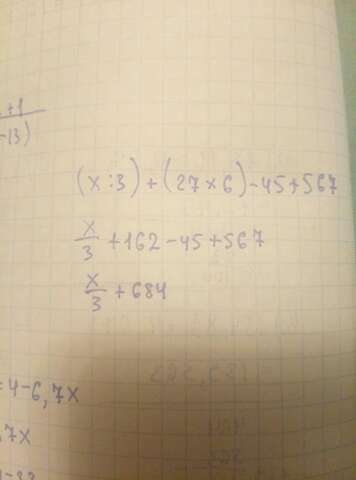 +1
-13)
(x:3)+(27×6)-45+567
x/3 +162-45+567
x/3 +684
=4-6,7x
,7x